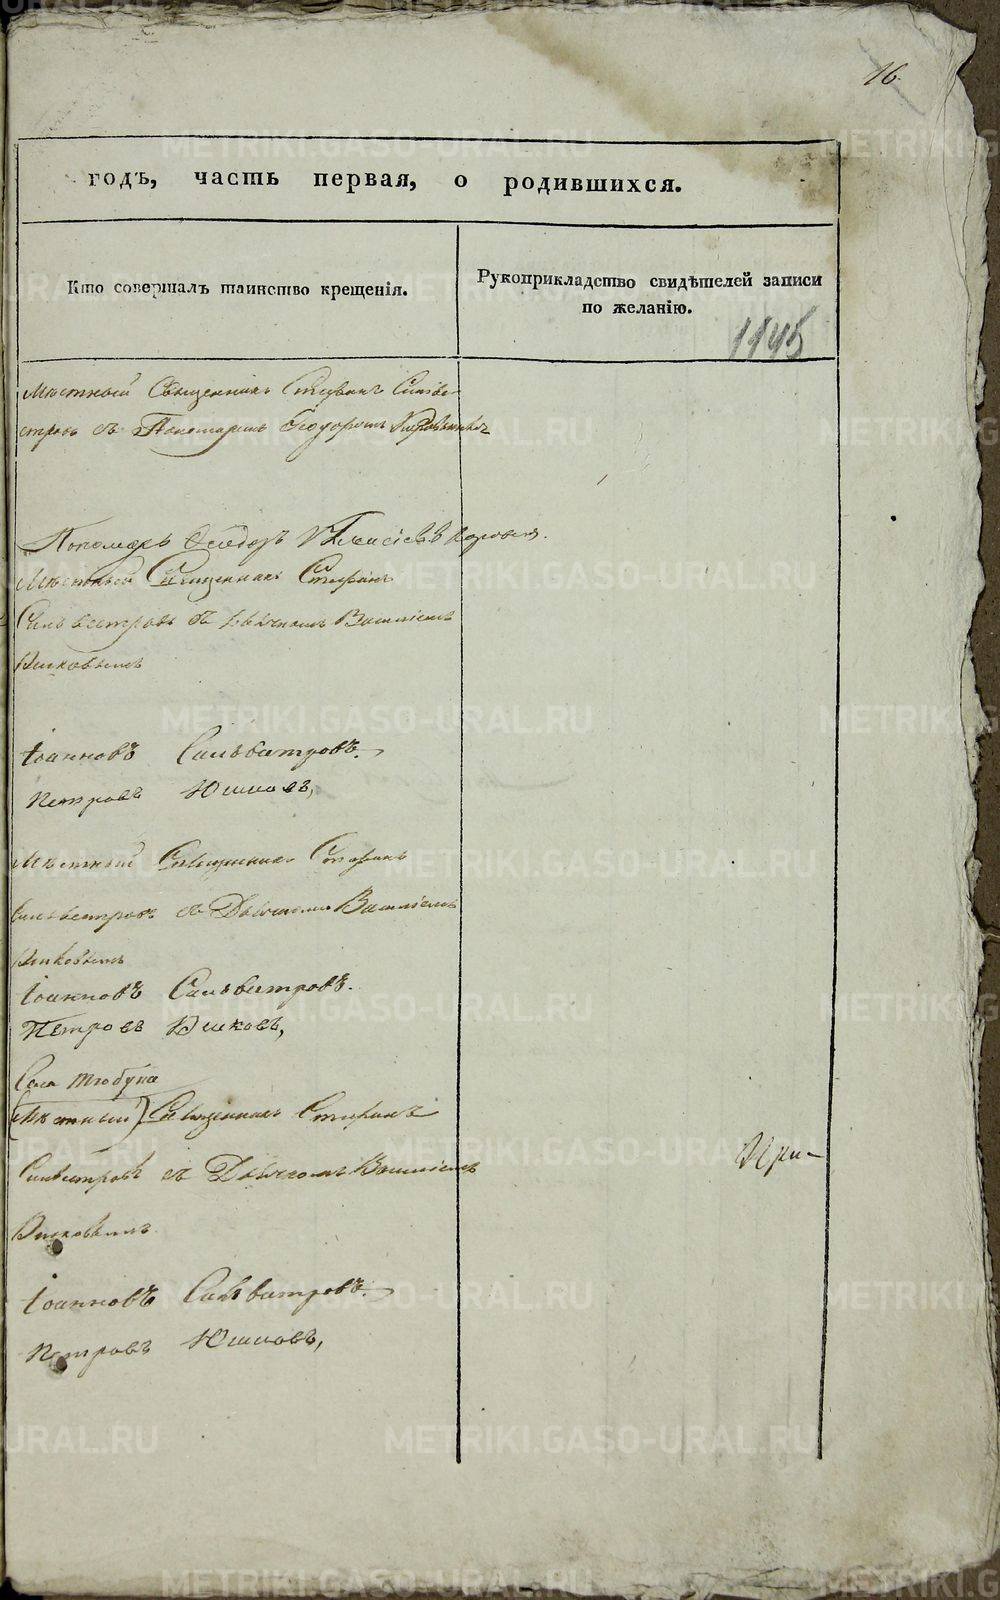 16.
годъ, часть первая, о родившихся.
Кто совершалъ таинство крещенія.
Рукоприкладство свидѣтелей записи
по желанію.
1145
Мѣстный Священникъ Стефанъ Сильве-
стровъ съ Пономаремъ Ѳеодоромъ
Пономарь Ѳеодоръ
Мѣстный Священникъ Стефанъ
Сильвестровъ съ Дьячкомъ Василіемъ
Юшковымъ
Іоанновъ Сильвестровъ.
Петровъ Юшковъ,
Мѣстный Священникъ Стефанъ
Сильвестровъ съ Дьячкомъ Василіемъ
Юшковымъ
Іоанновъ Сильвестровъ.
Петровъ Юшковъ,
Села Тюбука
(Мѣстный) Священникъ Стефанъ
Сильвестровъ съ Дьячкомъ Василіемъ
Юшковымъ
Іоанновъ Сильвестровъ.
Петровъ Юшковъ,
METRIKI.GASO-URAL.RU